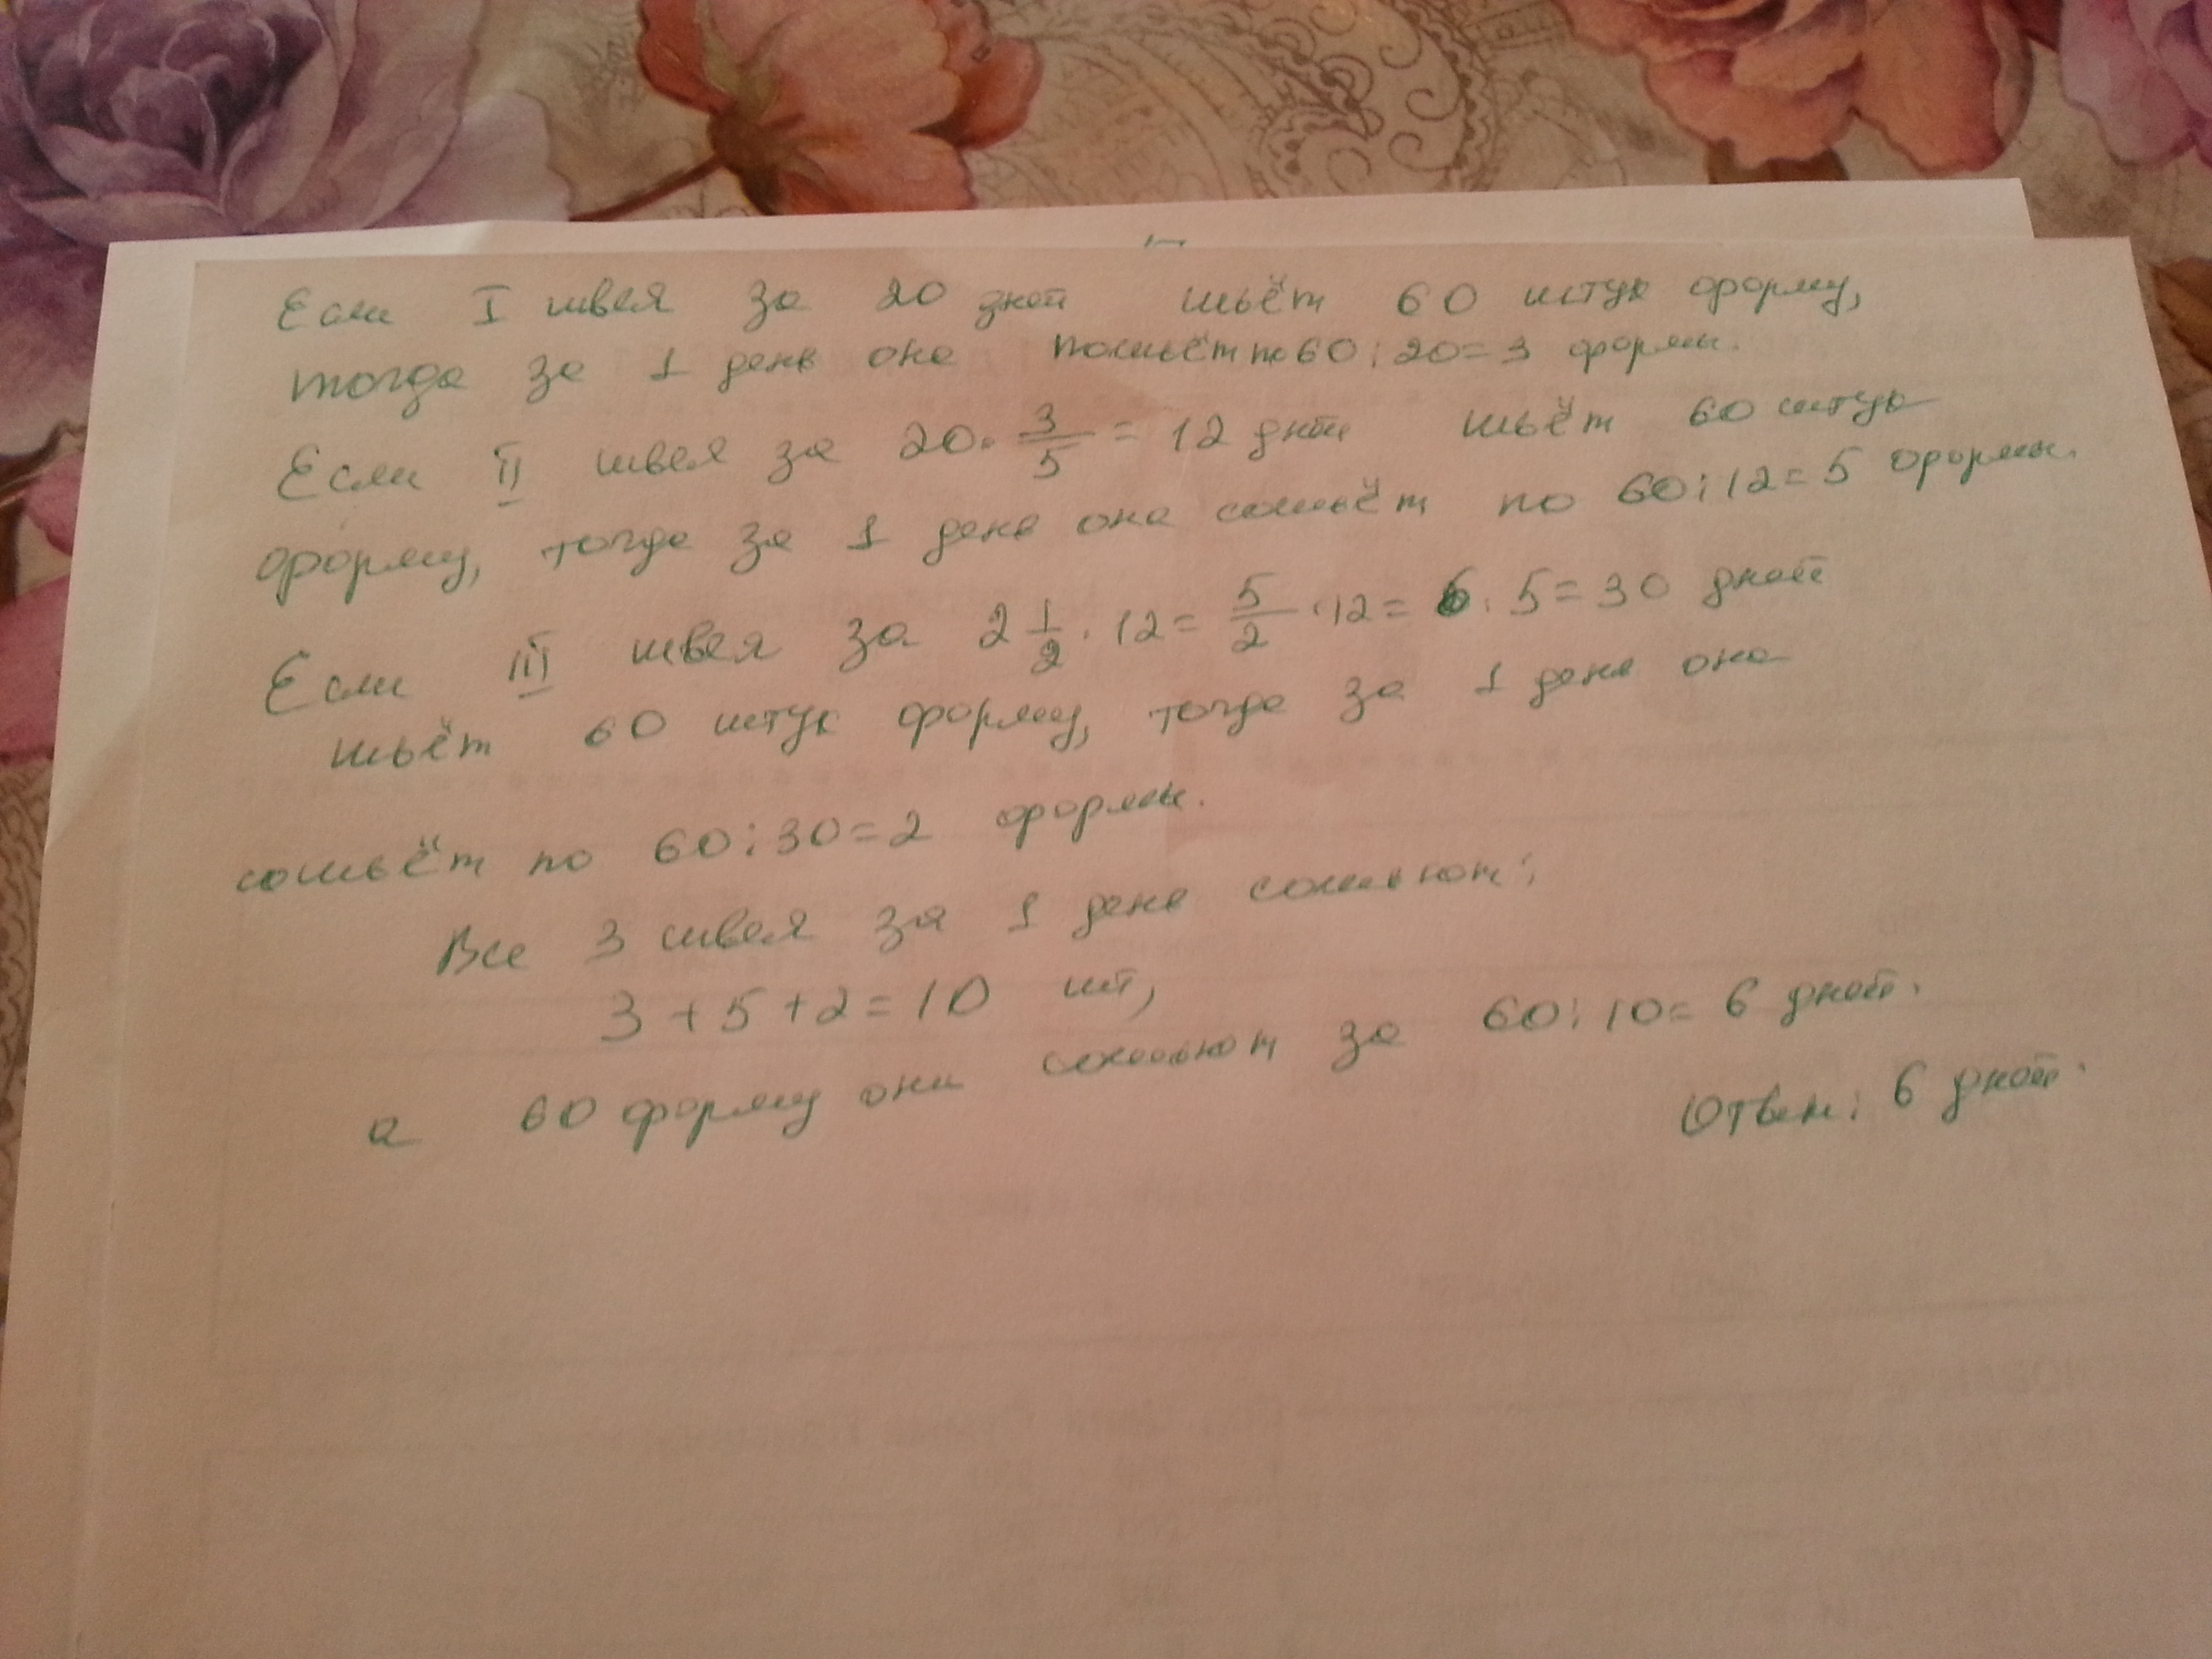 Если I швея за 20 дней шьёт 60 штук форму,
тогда за 1 день она пошьёт по 60 : 20 = 3 формы.
Если II швея за 20 · 3/5 = 12 дней шьёт 60 штук
форму, тогда за 1 день она сошьёт по 60 : 12 = 5 формы.
Если III швея за 2 1/2 · 12 = 5/2 · 12 = 6 · 5 = 30 дней
шьёт 60 штук форму, тогда за 1 день она
сошьёт по 60 : 30 = 2 формы.
Все 3 швея за 1 день сошьют:
3 + 5 + 2 = 10 шт,
а 60 форму они сошьют за 60 : 10 = 6 дней.
Ответ: 6 дней.